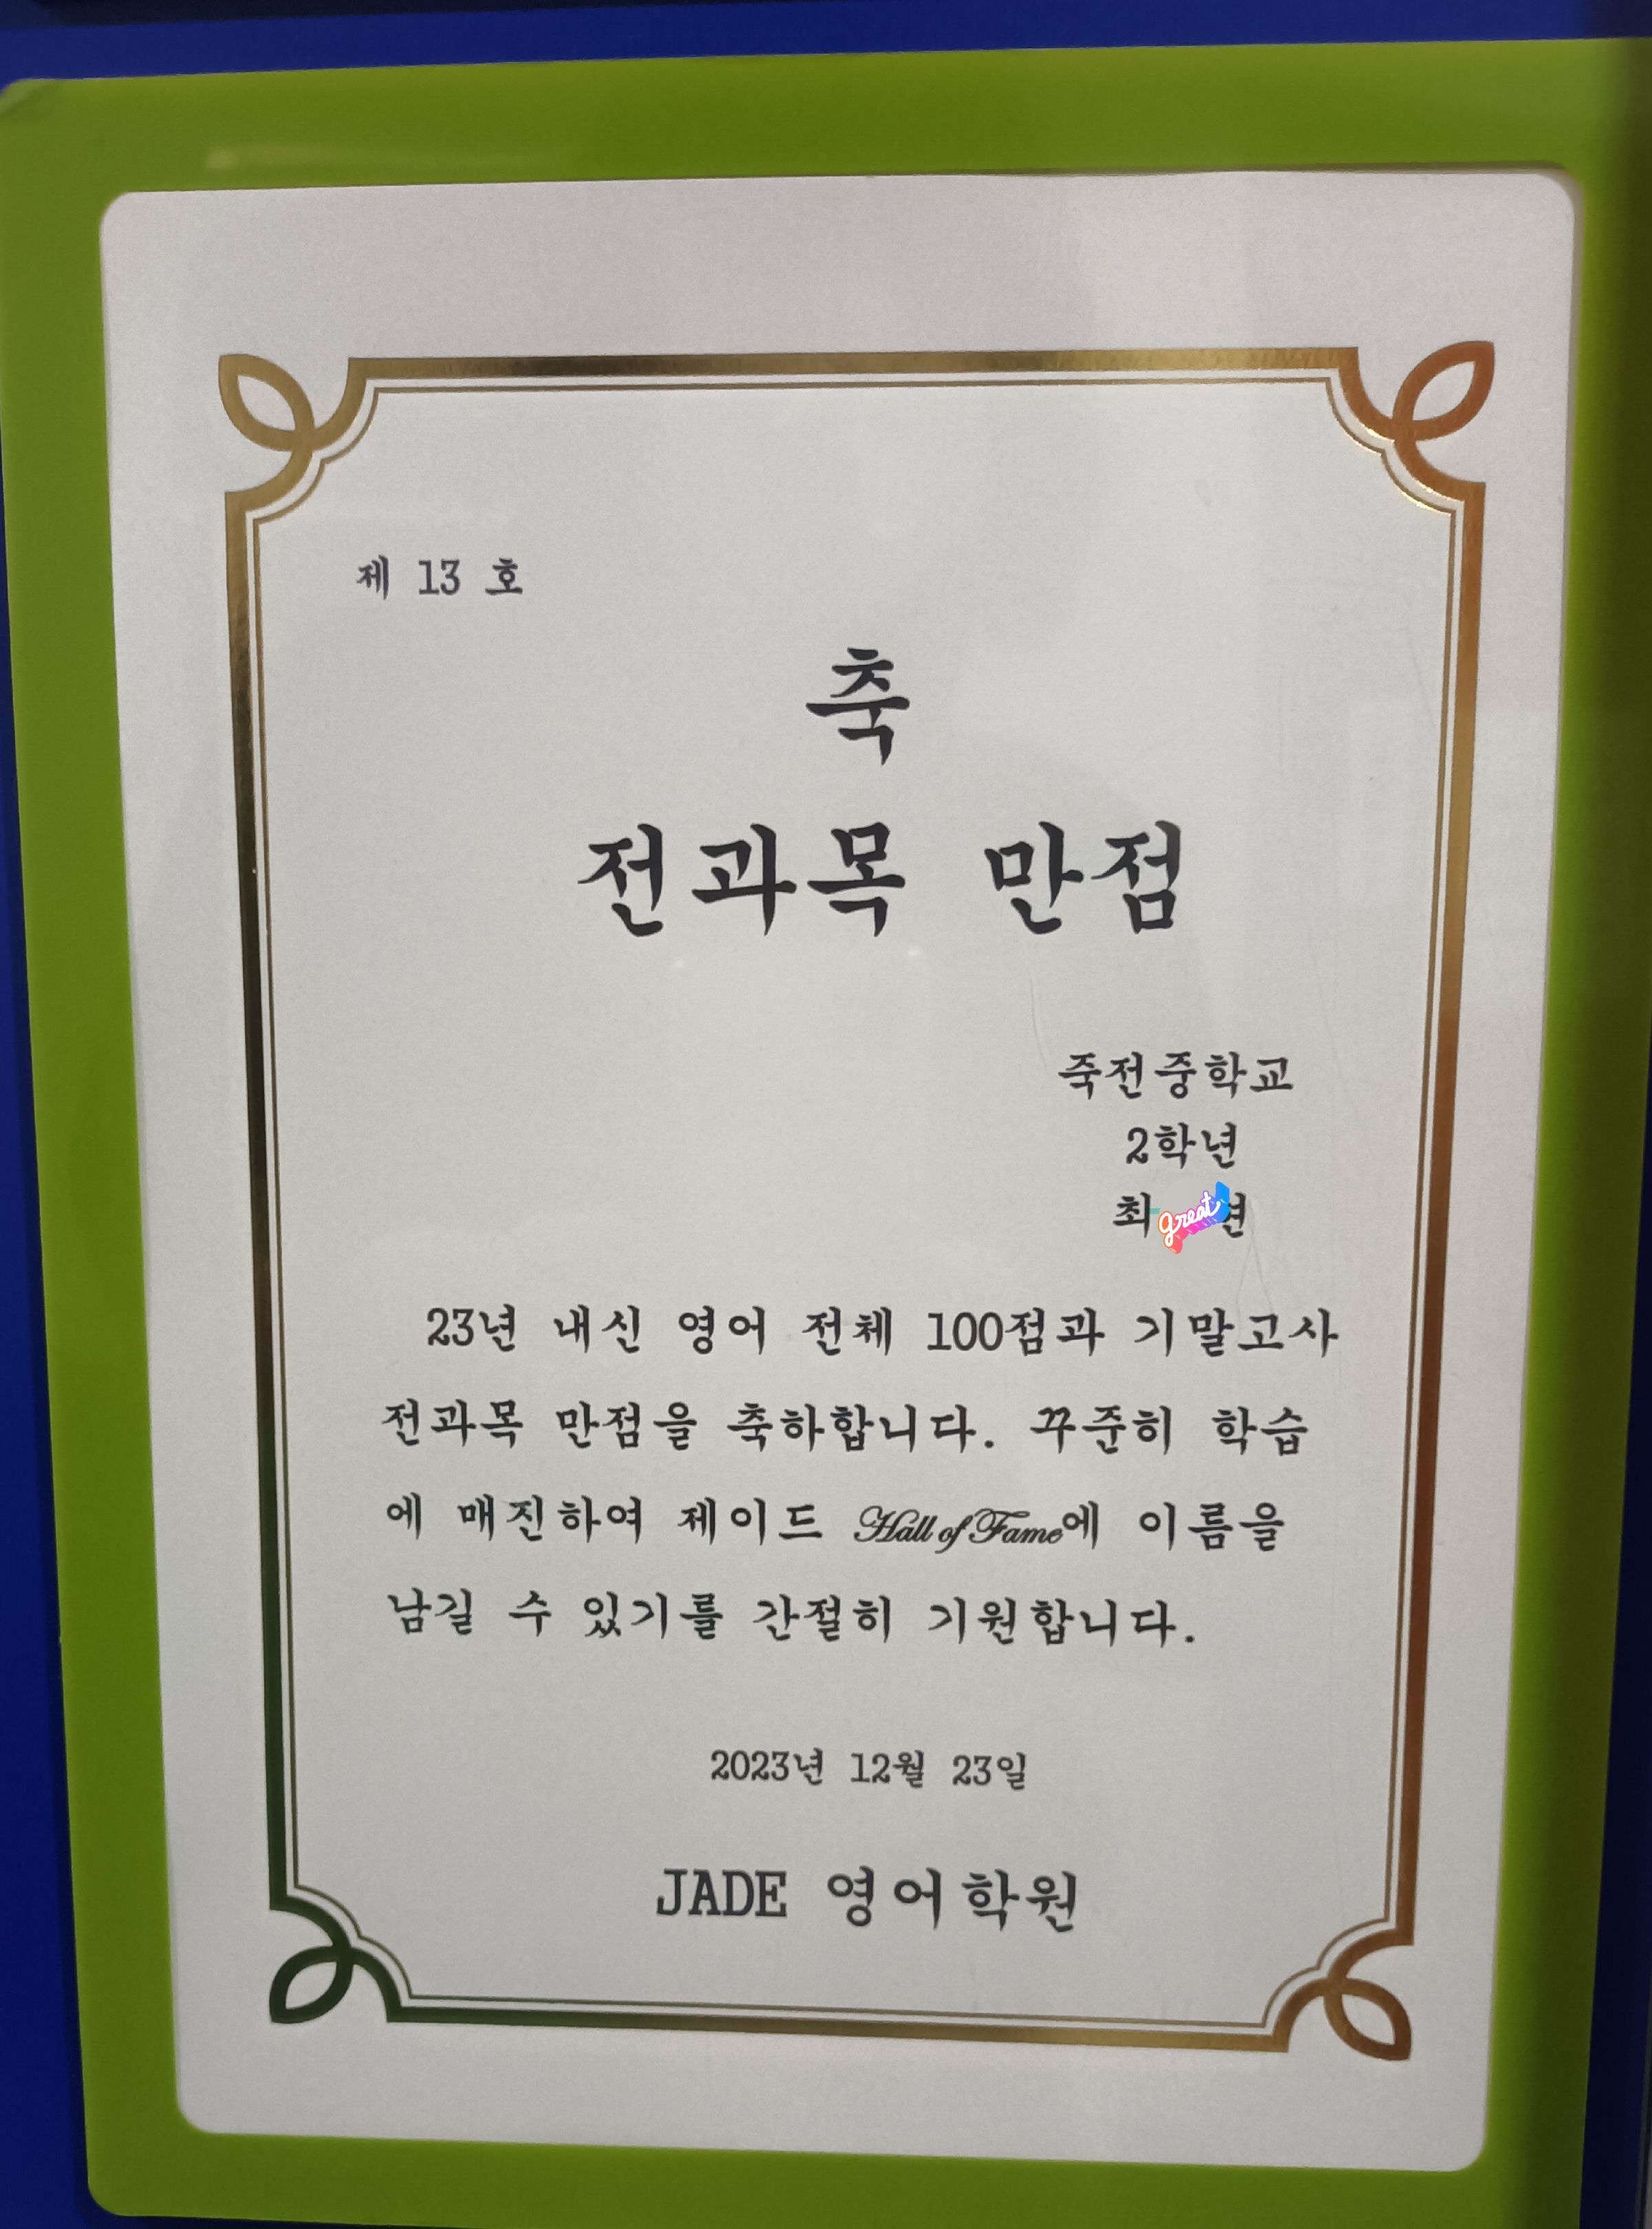 제 13 호
축
전과목 만점
죽전중학교
2학년
최 great
23년 내신 영어 전체 100점과 기말고사
전과목 만점을 축하합니다. 꾸준히 학습
에 매진하여 제이드 Hall of Fame에 이름을
남길 수 있기를 간절히 기원합니다.
2023년 12월 23일
JADE 영어학원